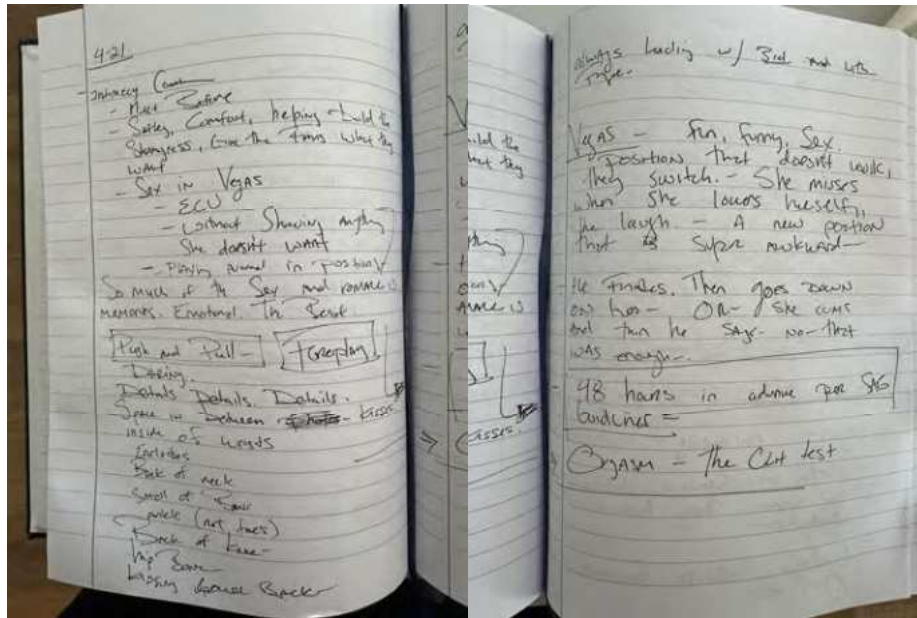 4-21
- Intimacy
- Meet Before
- Safety, Comfort, helping build the
Strangness, Give the them what they
want
- Sex in Vegas
- ECU
- without Showing anything
She doesn't want
- Playing in position
So much of the Sex and romance is
memories. Emotional. The
Push and Pull - Foreplay
Daring.
Details Details. Details.
Space in between kisses.
inside of
Includes
Back of neck
Small of Back
ankle (not toes)
Back of knee -
hip Bone
kissing Back
always leading w/ 3rd and 4th
VegAS - fun, funny, Sex.
position that doesn't work,
they switch. - She misses
when she lowers herself,
he laughs - A new position
that is Super awkward -
He Finishes. Then goes DOWN
on her - OR - she cums
and then he SAys - No - that
was enough -.
48 hours in advance per SAG
Orgasm - The Clit test